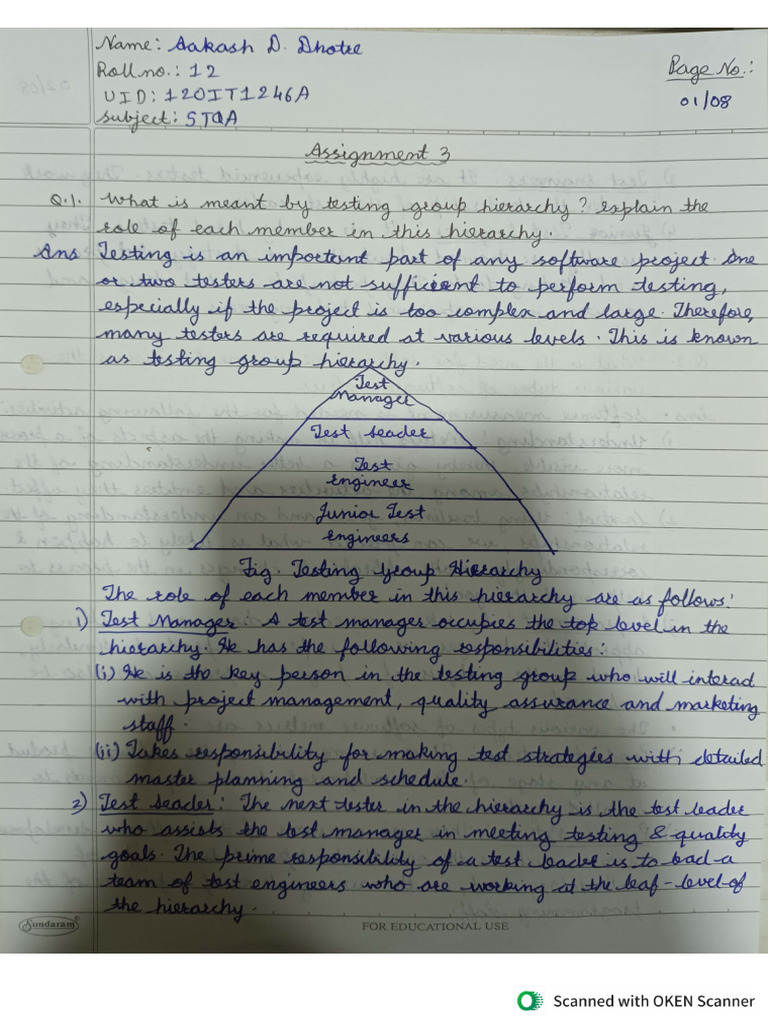 Name: Aakash D. Dhotre
Roll no.: 12
UID: 120IT1246A
Subject: STQA
Page No.:
01/08
Assignment 3
Q.1. What is meant by testing group hierarchy? Explain the
role of each member in this hierarchy.
Ans Testing is an important part of any software project One
or two testers are not sufficient to perform testing,
especially if the project is too complex and large. Therefore,
many testers are required at various levels. This is known
as testing group hierarchy.
Test
Manager
Test Leader
Test
Engineer
Junior Test
Engineers
Fig. Testing Group Hierarchy
The role of each member in this hierarchy are as follows:
1) Test Manager: A test manager occupies the top level in the
hierarchy. He has the following responsibilities:
(i) He is the key person in the testing group who will interact
with project management, quality assurance and marketing
staff.
(ii) Takes responsibility for making test strategies with detailed
master planning and schedule.
2) Test Leader: The next tester in the hierarchy is the test leader
who assists the test manager in meeting testing & quality
goals. The prime responsibility of a test leader is to lead a
team of test engineers who are working at the leaf-level of
the hierarchy.
Sundaram
FOR EDUCATIONAL USE
Scanned with OKEN Scanner